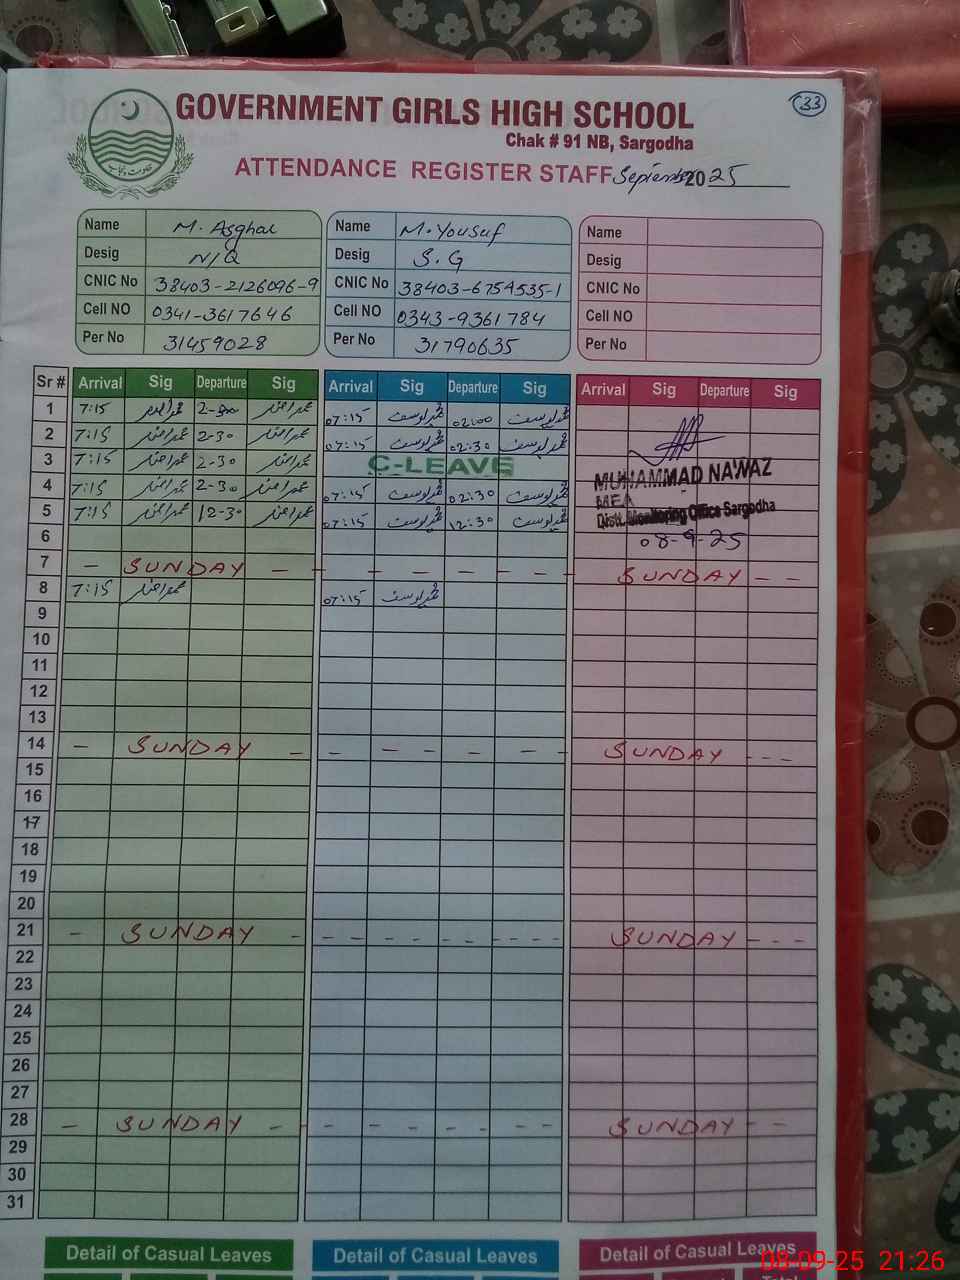 33
GOVERNMENT GIRLS HIGH SCHOOL
Chak # 91 NB, Sargodha
ATTENDANCE REGISTER STAFF September 2025
Name M. Asghar
Desig N/Q
CNIC No 38403-2126096-9
Cell NO 0341-3617646
Per No 31459028
Name M. Yousuf
Desig S.G
CNIC No 38403-6754535-1
Cell NO 0343-9361784
Per No 31790635
Name
Desig
CNIC No
Cell NO
Per No
Sr # Arrival Sig Departure Sig Arrival Sig Departure Sig Arrival Sig Departure Sig
1 7:15 2-30 07:15 محمد یوسف 02:00 محمد یوسف
2 7:15 2-30 07:15 محمد یوسف 02:30 محمد یوسف
3 7:15 2-30 C-LEAVE
4 7:15 2-30 07:15 محمد یوسف 02:30 محمد یوسف
5 7:15 12-30 07:15 محمد یوسف 12:30 محمد یوسف
MUHAMMAD NAWAZ
MEA
Distt. Monitoring Office Sargodha
08-9-25
6
7 - SUNDAY - - - - - - - SUNDAY - -
8 7:15 07:15 محمد یوسف
9
10
11
12
13
14 - SUNDAY - - - - - - SUNDAY - - -
15
16
17
18
19
20
21 - SUNDAY - - - - - - - - - - SUNDAY - - -
22
23
24
25
26
27
28 - SUNDAY - - - - - - - - - SUNDAY - -
29
30
31
Detail of Casual Leaves Detail of Casual Leaves Detail of Casual Leaves
08-09-25 21:26